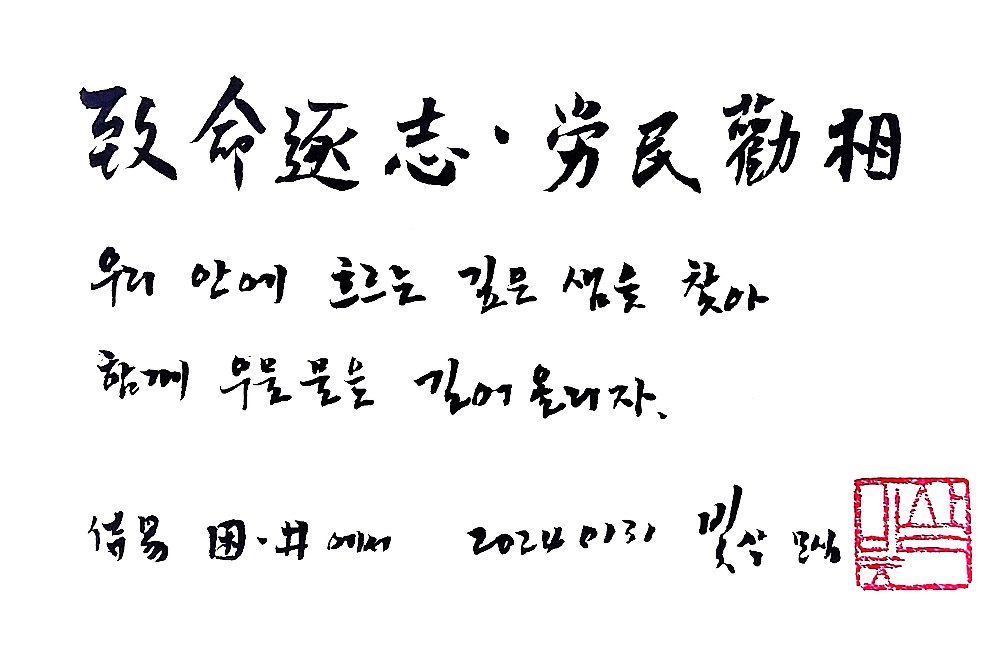 致命遂志·労民勸相
우리 안에 흐르는 깊은 샘을 찾아
함께 우물물을 길어 올리자.
易 困·井에서 20240131 빛살 모심